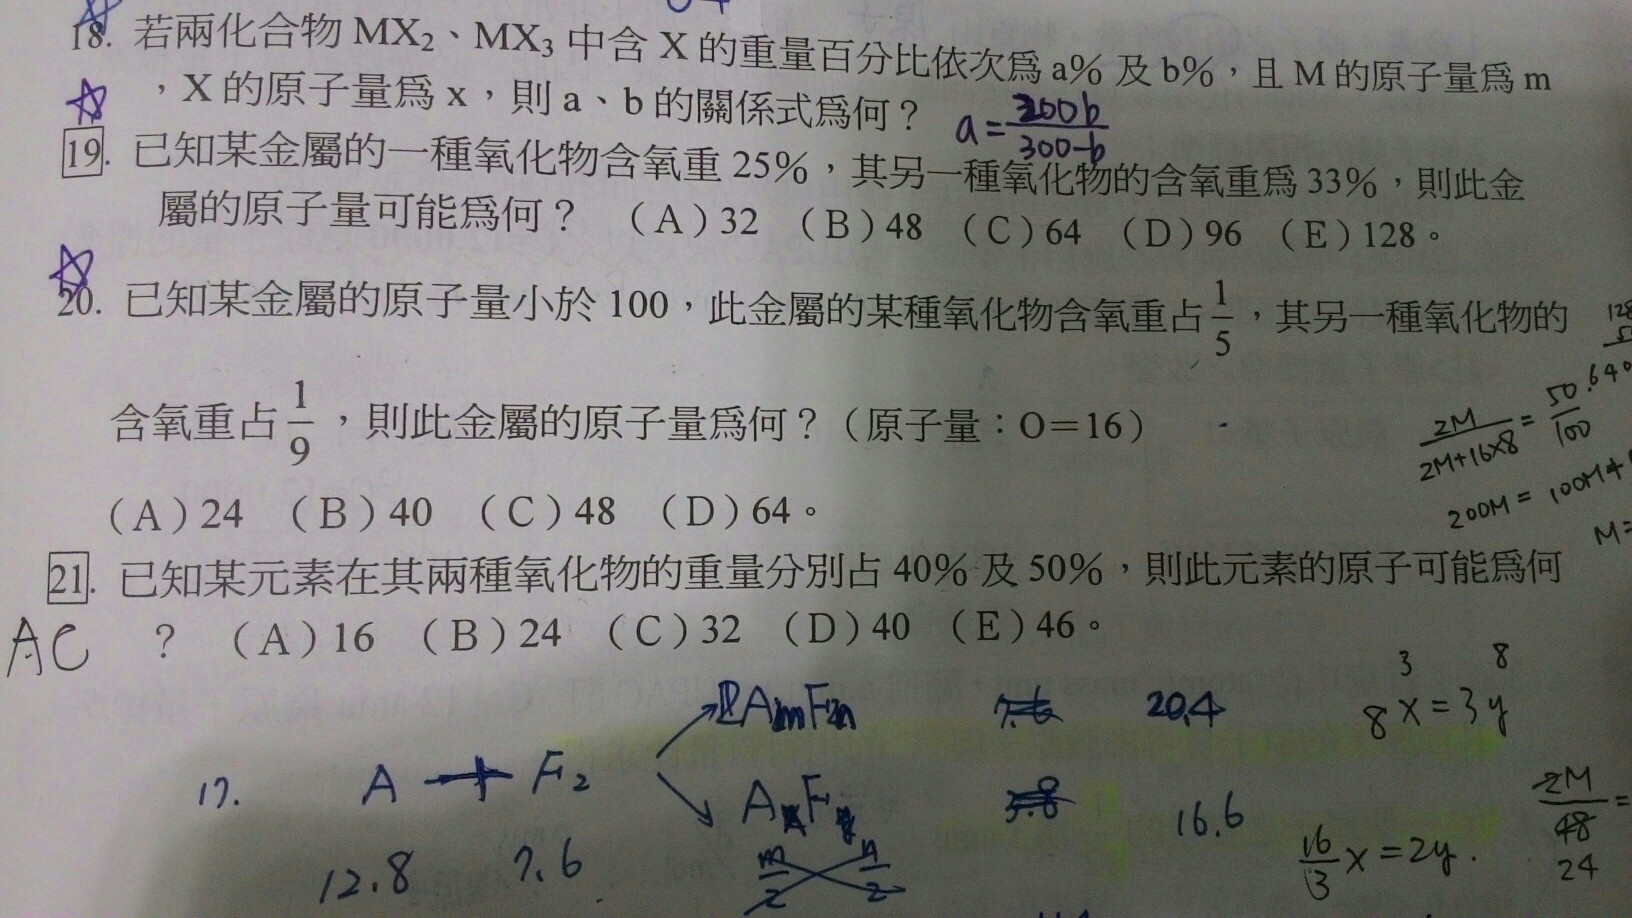 18. 若兩化合物 MX₂、MX₃ 中含 X 的重量百分比依次爲 a% 及 b%，且 M 的原子量爲 m
，X 的原子量爲 x，則 a、b 的關係式爲何？ a=200b/300-b
19. 已知某金屬的一種氧化物含氧重 25%，其另一種氧化物的含氧重爲 33%，則此金
屬的原子量可能爲何？ （A）32 （B）48 （C）64 （D）96 （E）128。
20. 已知某金屬的原子量小於 100，此金屬的某種氧化物含氧重占 1/5，其另一種氧化物的
含氧重占 1/9，則此金屬的原子量爲何？（原子量：O＝16）
（A）24 （B）40 （C）48 （D）64。
2M/2M+16×8 = 50/100
200M = 100M+
M=
21. 已知某元素在其兩種氧化物的重量分別占 40% 及 50%，則此元素的原子可能爲何
AC ？ （A）16 （B）24 （C）32 （D）40 （E）46。
3 8
8x=3y
20.4
17. A + F₂
16.6
12.8 7.6
m/2 n/2
16/3 x=2y.
2M/48 =
24